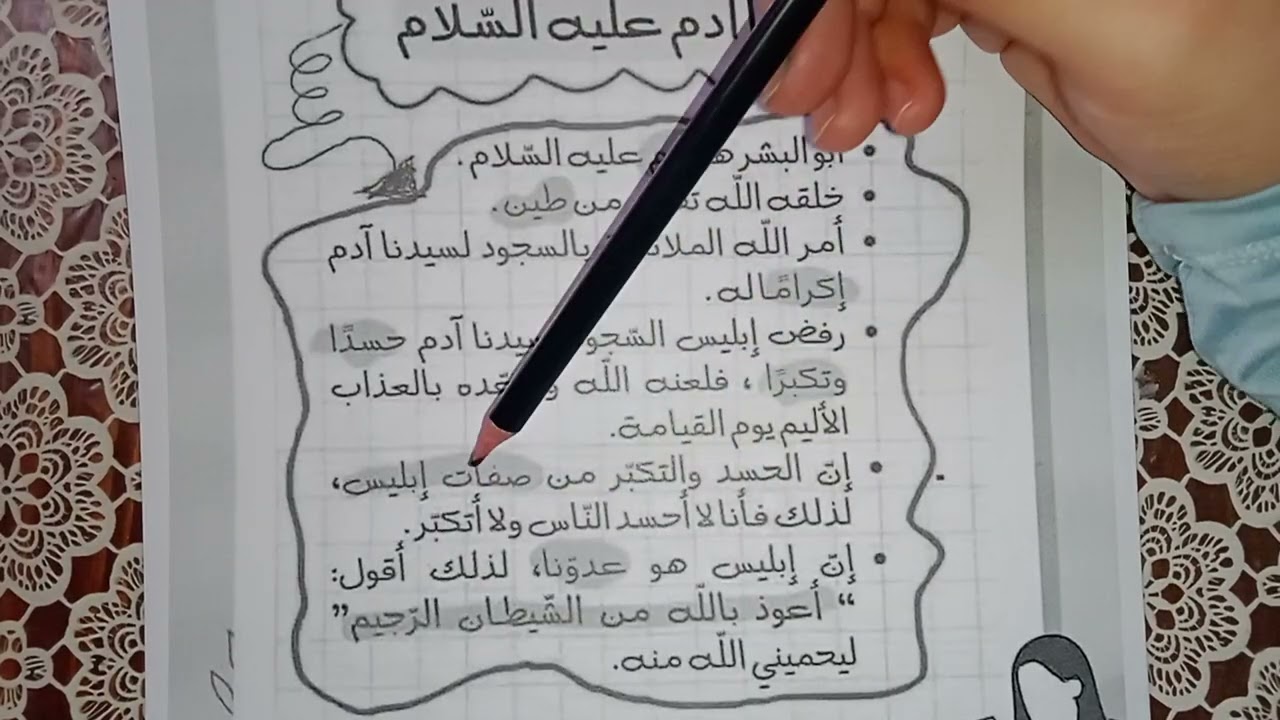 آدم عليه السّلام
أبو البشر عليه السّلام.
خلقه اللّه من طين.
أمر اللّه بالسجود لسيدنا آدم
إكرامًا له.
رفض إبليس حسدًا آدم
وتكبرًا ، فلعنه اللّه بالعذاب
الأليم يوم القيامة.
إنّ الحسد والتكبّر من صفات إبليس،
لذلك فأنا لا أحسد النّاس ولا أتكبّر.
إنّ إبليس هو عدوّنا، لذلك أقول:
“ أعوذ باللّه من الشّيطان الرّجيم”
ليحميني اللّه منه.